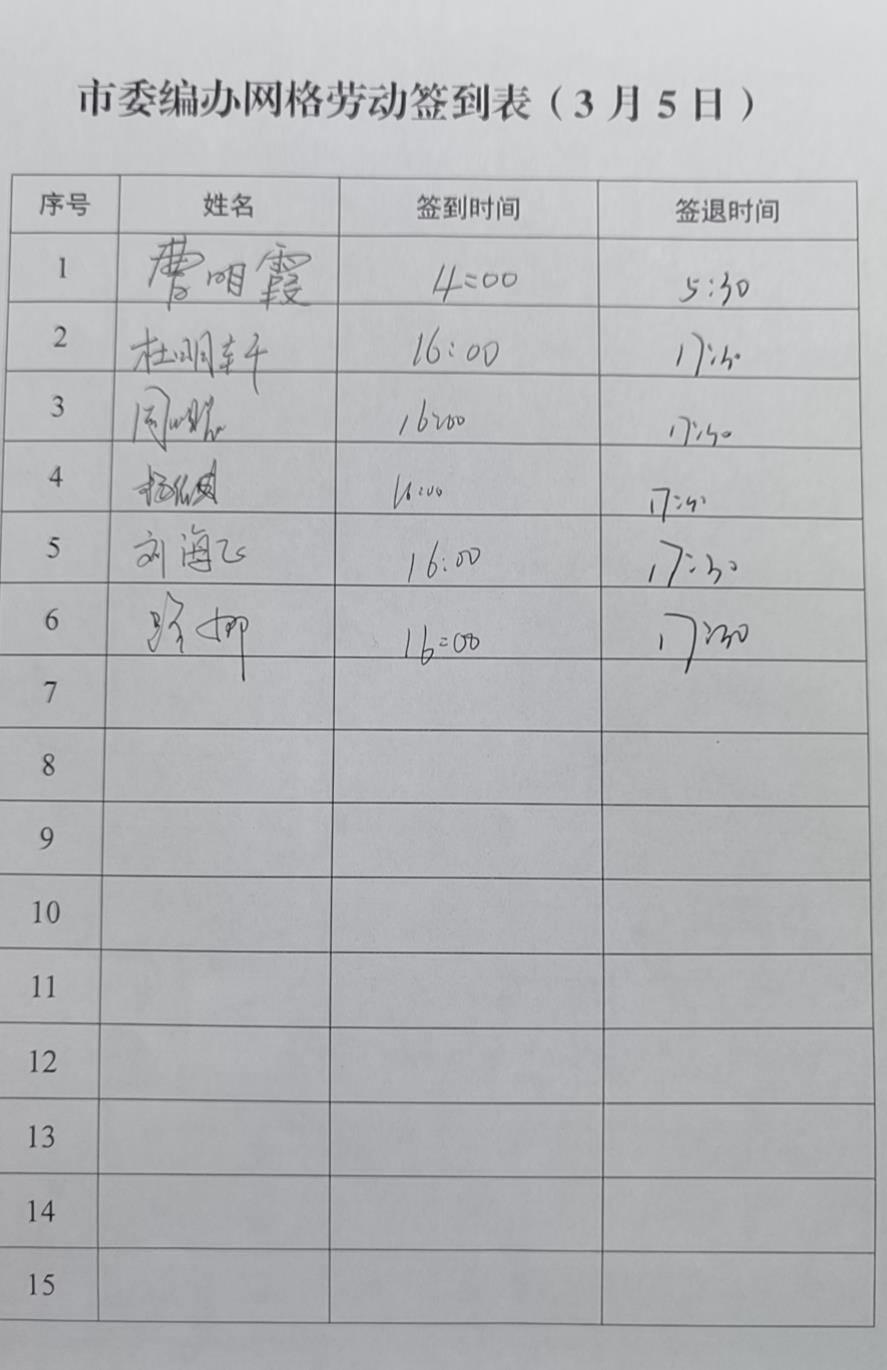 市委编办网格劳动签到表（3月5日）
序号 姓名 签到时间 签退时间
1 曹明霞 4:00 5:30
2 杜明轩 16:00 17:30
3 周 16:00 17:30
4 杨 16:00 17:30
5 刘海飞 16:00 17:30
6 路娜 16:00 17:30
7
8
9
10
11
12
13
14
15